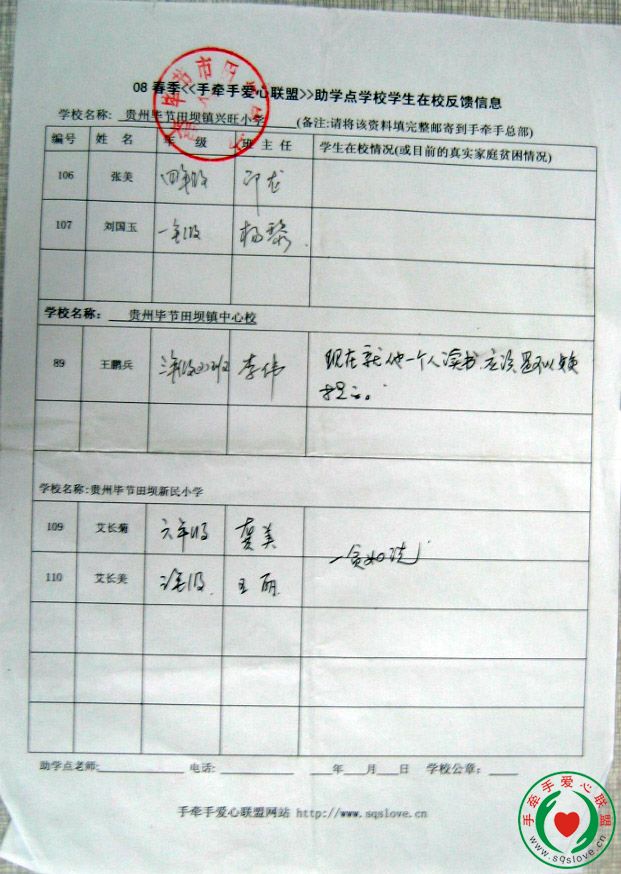 08 春季<<手牵手爱心联盟>>助学点学校学生在校反馈信息
学校名称: 贵州毕节田坝镇兴旺小学 (备注:请将该资料填完整邮寄到手牵手总部)
编号 姓 名 年 级 班 主 任 学生在校情况(或目前的真实家庭贫困情况)
106 张美 四年级
107 刘国玉 一年级 杨黎
学校名称: 贵州毕节田坝镇中心校
89 王鹏兵 李伟 现在就他一个人读书.应该还可以负
担。
学校名称:贵州毕节田坝新民小学
109 艾长菊 六年级 龚美
一贫如洗
110 艾长美 王丽
助学点老师: 电话: 年 月 日 学校公章:
手牵手爱心联盟网站 http://www.sqslove.cn
手牵手爱心联盟
www.sqslove.cn